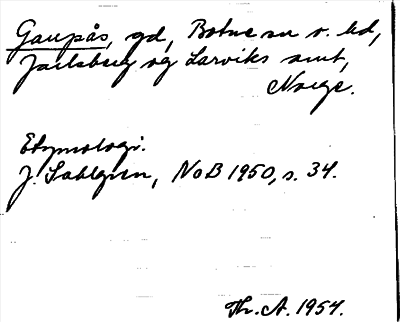 Gaupås, gd, Botne sn o. hd,
Jarlsberg og Larviks amt,
Norge.
Etymologi.
J. Sahlgren, NoB 1950, s. 34.
Th. A. 1954.